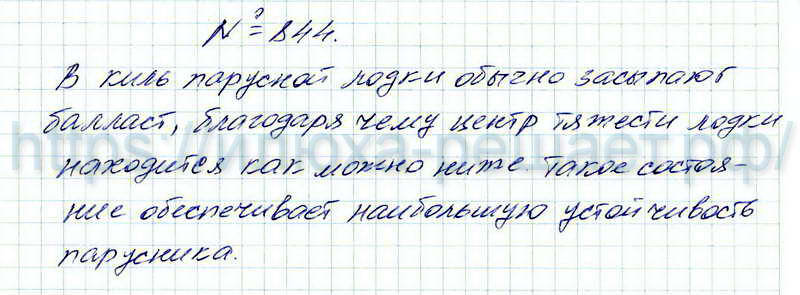 № 844.
В киль парусной лодки обычно засыпают
балласт, благодаря чему центр тяжести лодки
находится как можно ниже. Такое состоя-
ние обеспечивает наибольшую устойчивость
парусника.
https://илюха-решает.рф/